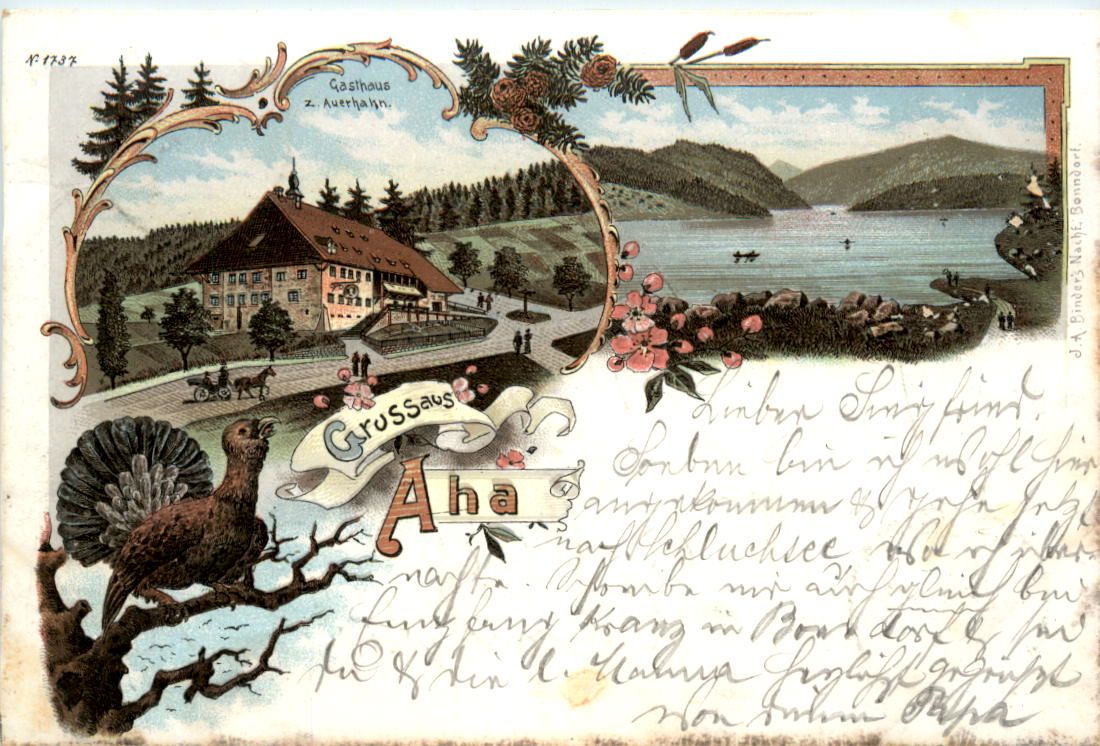 N. 1737
Gasthaus
z. Auerhahn.
J. A. Binder's Nachf. Bonndorf.
Gruss aus
Aha
Lieber Siegfried.
Soeben bin ich wohl hier
angekommen & gehe jetzt
nach Schluchsee, wo ich über-
nachte. Schreibe mir auch gleich bei
Empfang Kranz in Bonndorf & sei
du & die l. Mama herzlichst gegrüßt
von deinem Papa